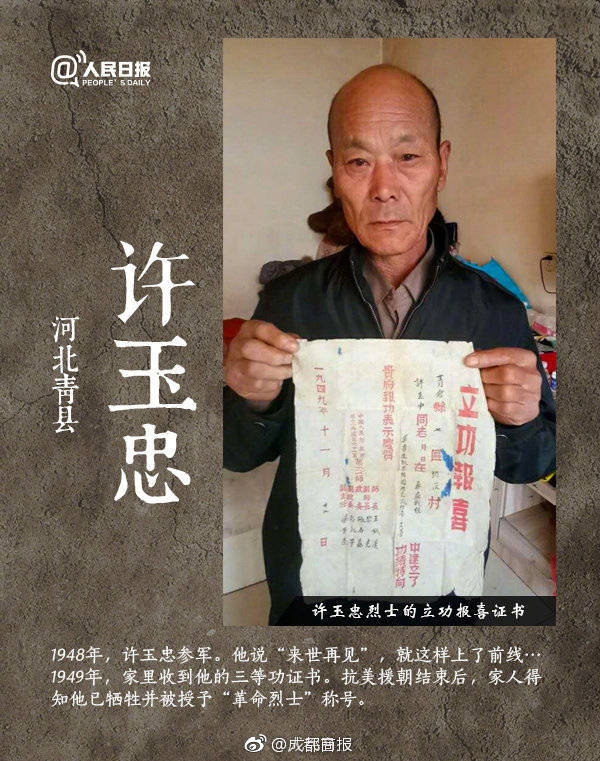 人民日报
PEOPLE'S DAILY
许玉忠
河北青县
立功報喜
青倉縣七區
村
許玉中同志
月
日在
中建立了
功績特向
貴府報功表示慶賀
師長
副師長
政委
一九四九年十一月
日
许玉忠烈士的立功报喜证书
1948年，许玉忠参军。他说“来世再见”，就这样上了前线…
1949年，家里收到他的三等功证书。抗美援朝结束后，家人得
知他已牺牲并被授予“革命烈士”称号。
@成都商报